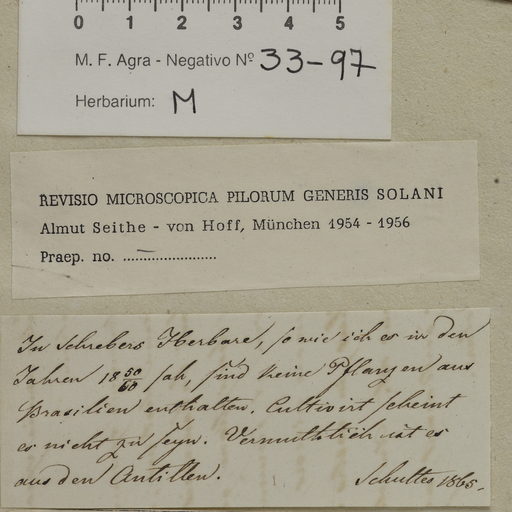 0 1 2 3 4 5
M. F. Agra - Negativo Nº 33-97
Herbarium: M
REVISIO MICROSCOPICA PILORUM GENERIS SOLANI
Almut Seithe - von Hoff, München 1954 - 1956
Praep. no. ........................
In Schrebers Herbare, so wie ich es in den
Jahren 18 50/60 sah, sind keine Pflanzen aus
Brasilien enthalten. Cultivirt scheint
es nicht zu seyn. Vermuthlich ist es
aus den Antillen. Schultes 1865.